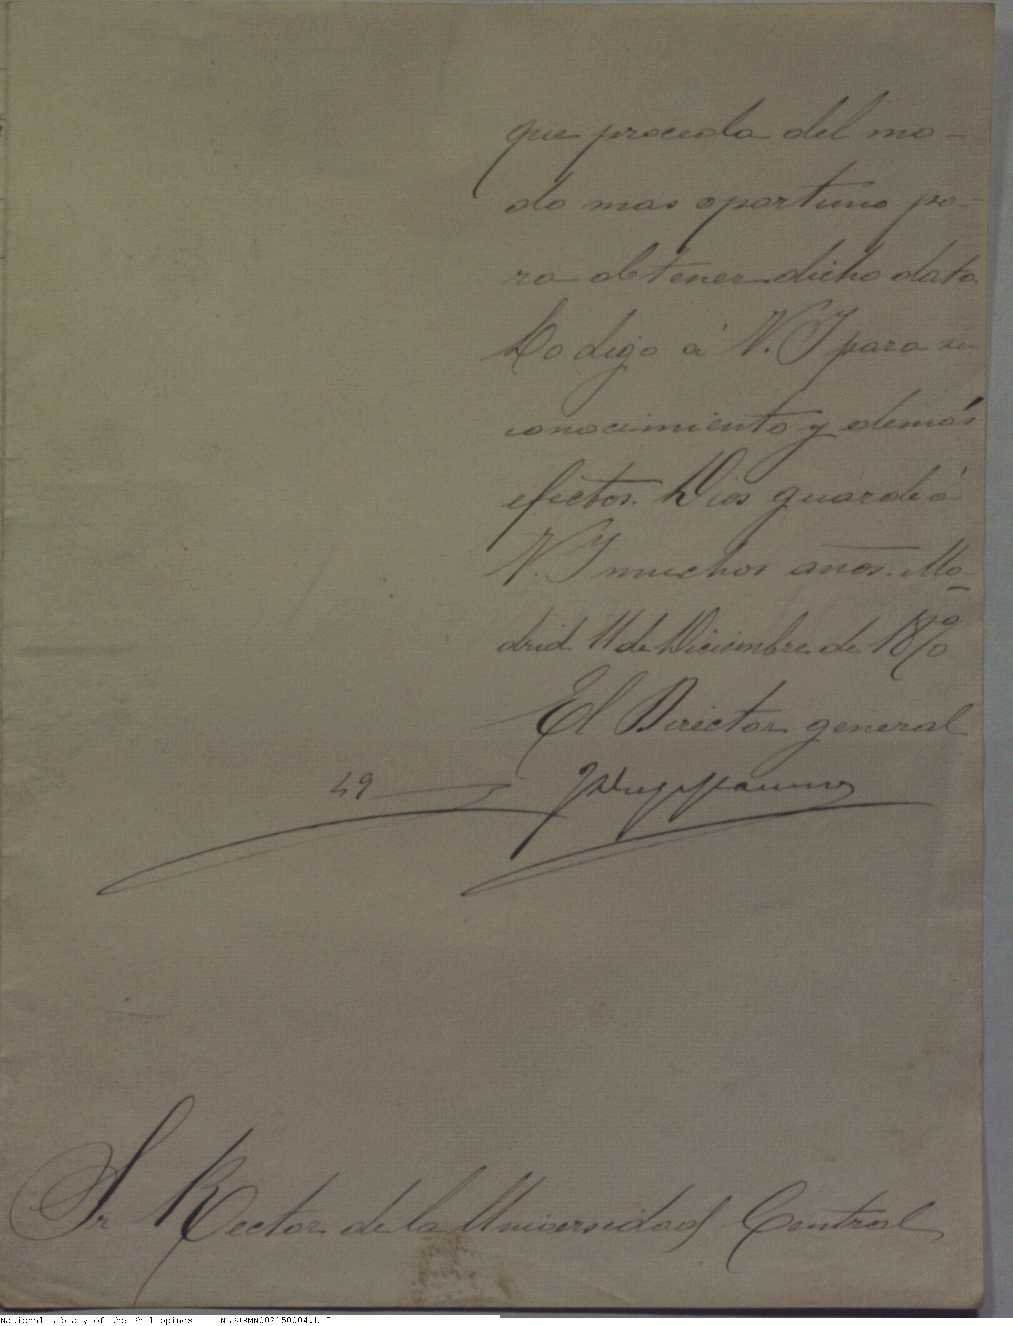 que proceda del mo-
do mas oportuno pa-
ra obtener dicho dato.
Lo digo á V. I para su
conocimiento y demás
efectos. Dios guarde á
V. I muchos años. Ma-
drid 11 de Diciembre de 1870
El Director general
49
Sr Rector de la Universidad Central
National Library of the Philippines